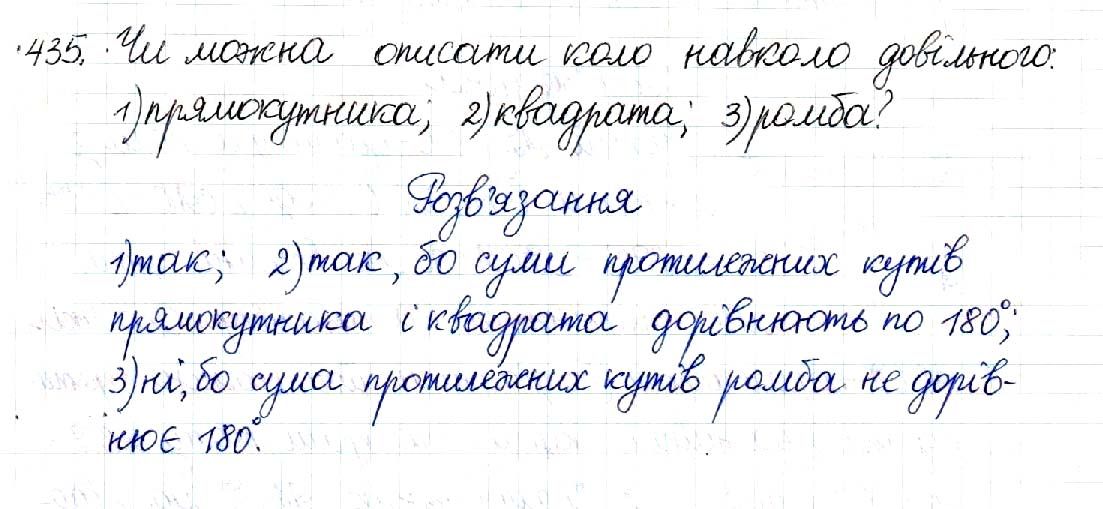 435. Чи можна описати коло навколо довільного:
1) прямокутника; 2) квадрата; 3) ромба?
Розв'язання
1) так; 2) так, бо суми протилежних кутів
прямокутника і квадрата дорівнюють по 180°;
3) ні, бо сума протилежних кутів ромба не дорів-
нює 180°.